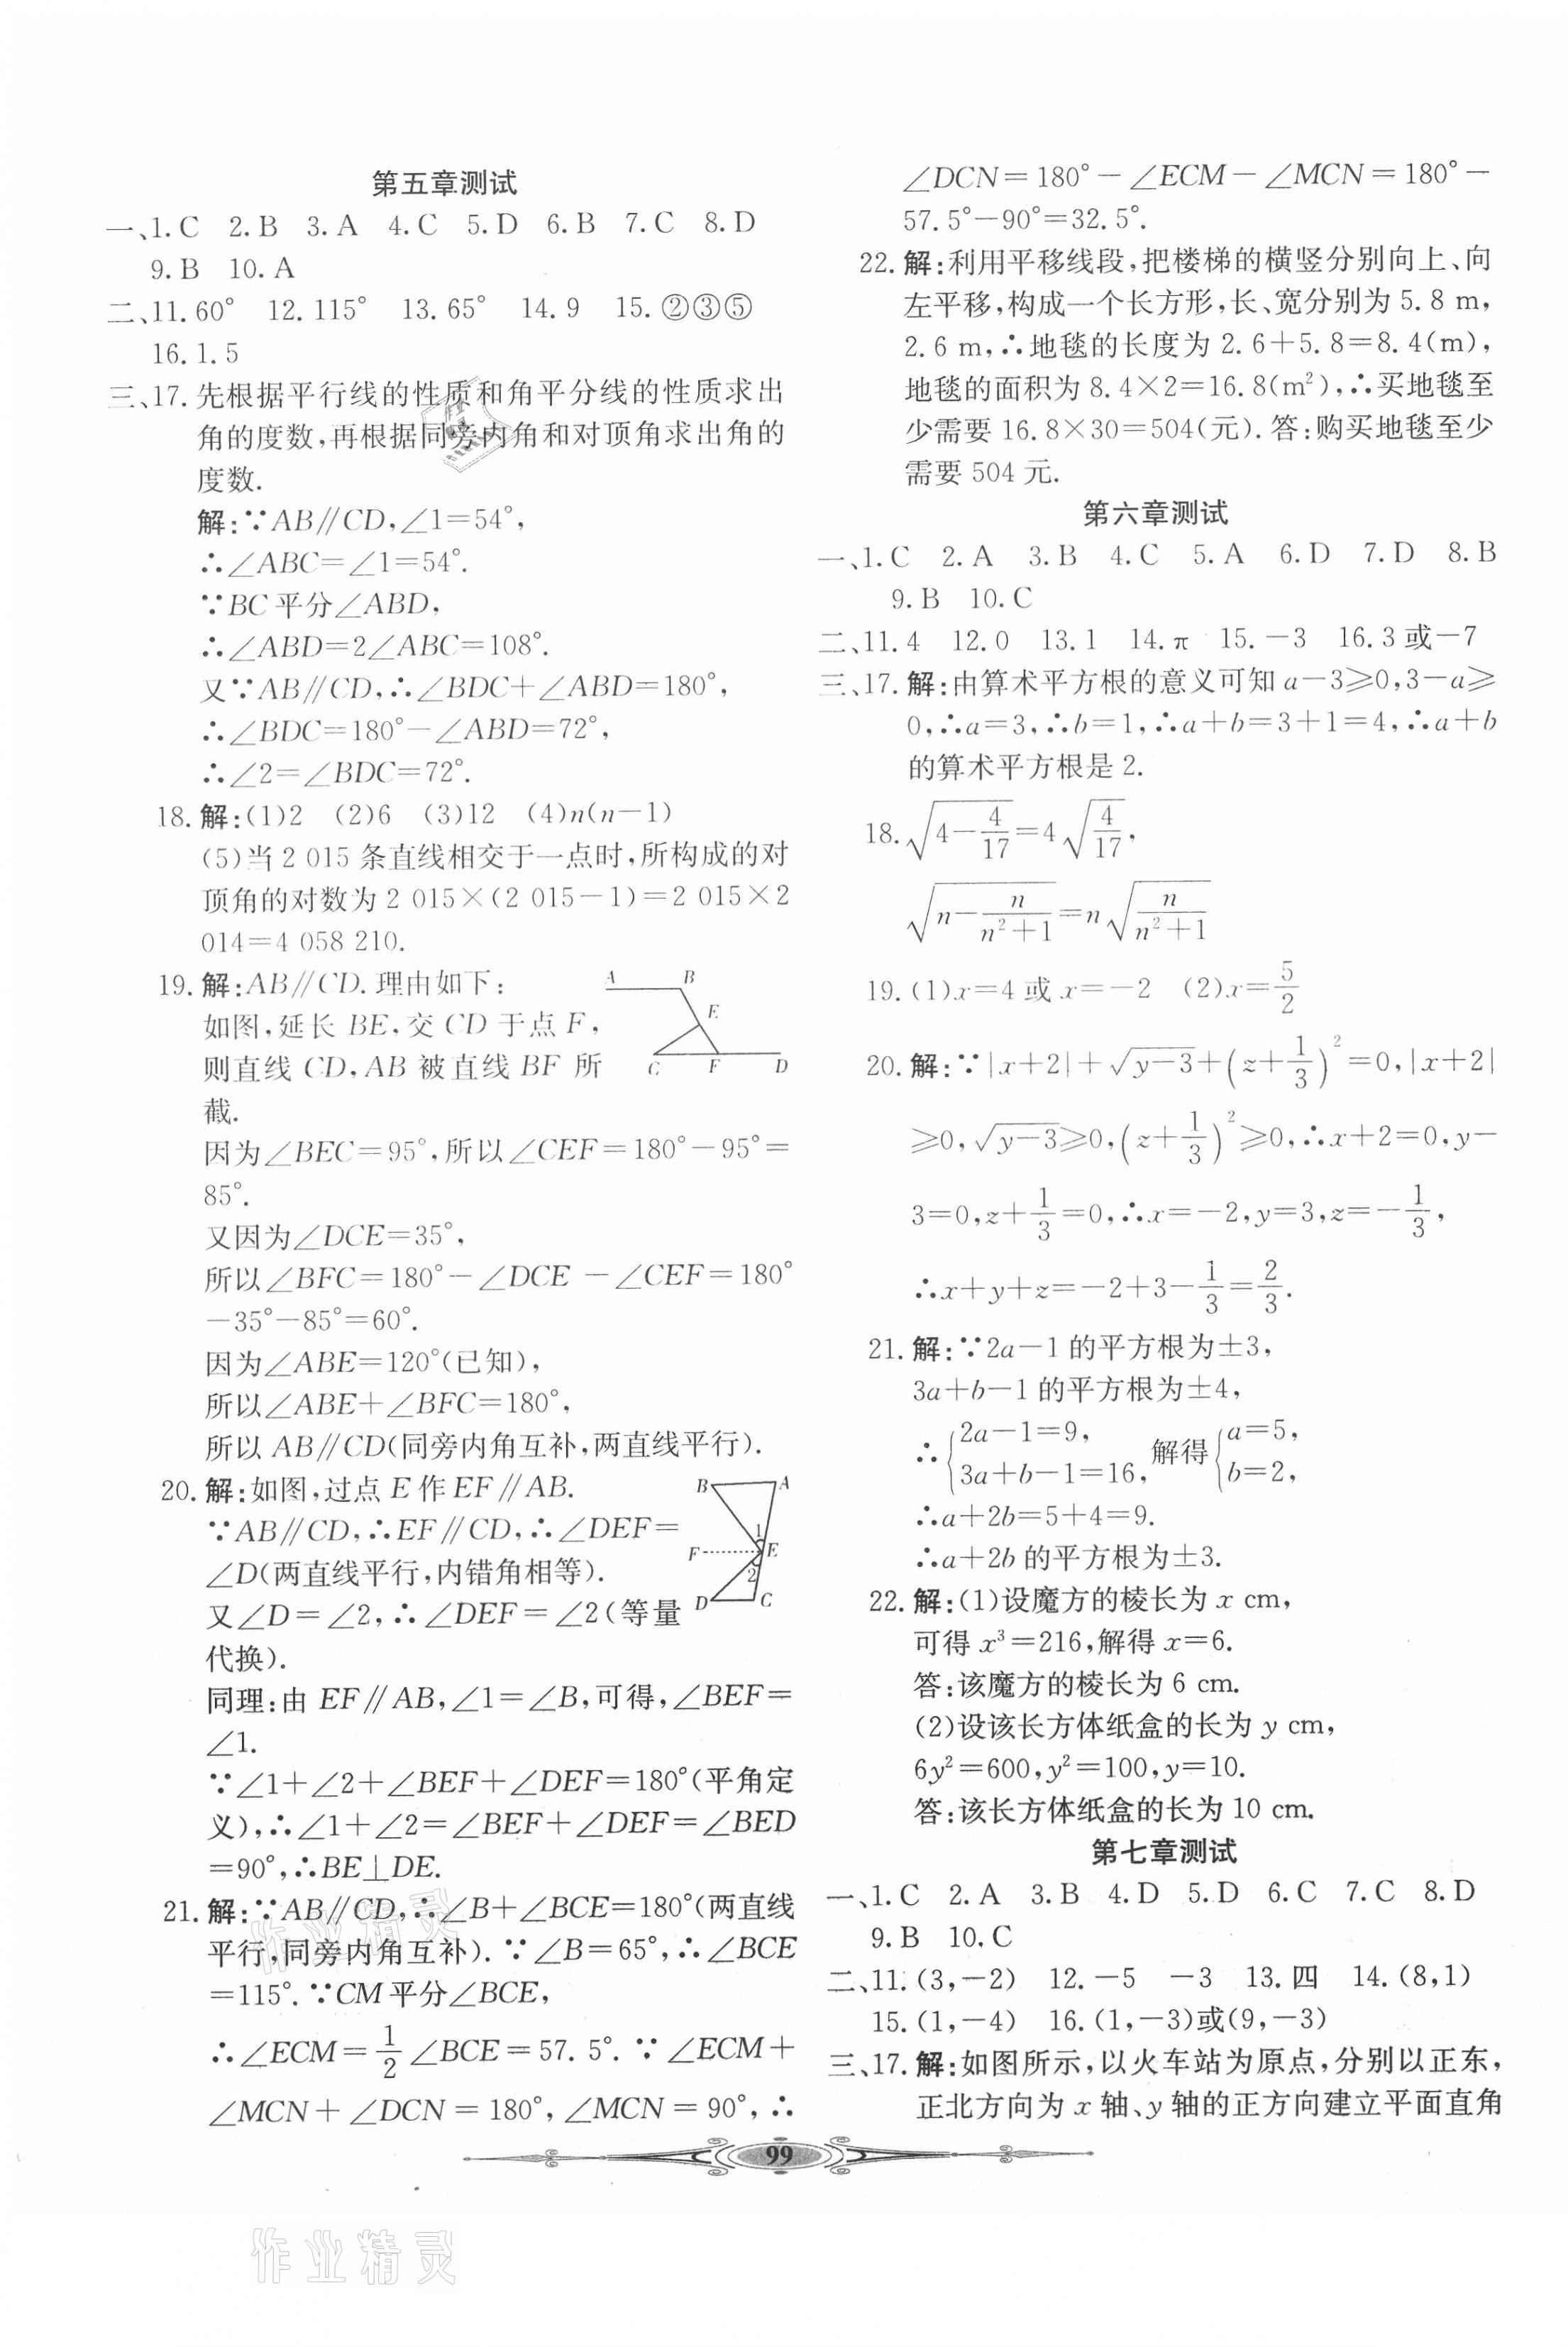 第五章测试
一、1.C 2.B 3.A 4.C 5.D 6.B 7.C 8.D
9.B 10.A
二、11.60° 12.115° 13.65° 14.9 15.②③⑤
16.1.5
三、17.先根据平行线的性质和角平分线的性质求出
角的度数,再根据同旁内角和对顶角求出角的
度数.
解:∵AB∥CD,∠1=54°,
∴∠ABC=∠1=54°.
∵BC平分∠ABD,
∴∠ABD=2∠ABC=108°.
又∵AB∥CD,∴∠BDC+∠ABD=180°,
∴∠BDC=180°-∠ABD=72°,
∴∠2=∠BDC=72°.
18.解:(1)2 (2)6 (3)12 (4)n(n-1)
(5)当2 015条直线相交于一点时,所构成的对
顶角的对数为2 015×(2 015-1)=2 015×2
014=4 058 210.
19.解:AB∥CD.理由如下:
如图,延长BE,交CD于点F,
则直线CD,AB被直线BF所
截.
A B E C F D
因为∠BEC=95°,所以∠CEF=180°-95°=
85°.
又因为∠DCE=35°,
所以∠BFC=180°-∠DCE-∠CEF=180°
-35°-85°=60°.
因为∠ABE=120°(已知),
所以∠ABE+∠BFC=180°,
所以AB∥CD(同旁内角互补,两直线平行).
20.解:如图,过点E作EF∥AB.
∵AB∥CD,∴EF∥CD,∴∠DEF=
∠D(两直线平行,内错角相等).
又∠D=∠2,∴∠DEF=∠2(等量
代换).
B A 1 F E 2 D C
同理:由EF∥AB,∠1=∠B,可得,∠BEF=
∠1.
∵∠1+∠2+∠BEF+∠DEF=180°(平角定
义),∴∠1+∠2=∠BEF+∠DEF=∠BED
=90°,∴BE⊥DE.
21.解:∵AB∥CD,∴∠B+∠BCE=180°(两直线
平行,同旁内角互补).∵∠B=65°,∴∠BCE
=115°.∵CM平分∠BCE,
∴∠ECM=1/2∠BCE=57.5°.∵∠ECM+
∠MCN+∠DCN=180°,∠MCN=90°,∴
∠DCN=180°-∠ECM-∠MCN=180°-
57.5°-90°=32.5°.
22.解:利用平移线段,把楼梯的横竖分别向上、向
左平移,构成一个长方形,长、宽分别为5.8 m,
2.6 m,∴地毯的长度为2.6+5.8=8.4(m),
地毯的面积为8.4×2=16.8(m²),∴买地毯至
少需要16.8×30=504(元).答:购买地毯至少
需要504元.
第六章测试
一、1.C 2.A 3.B 4.C 5.A 6.D 7.D 8.B
9.B 10.C
二、11.4 12.0 13.1 14.π 15.-3 16.3或-7
三、17.解:由算术平方根的意义可知a-3≥0,3-a≥
0,∴a=3,∴b=1,∴a+b=3+1=4,∴a+b
的算术平方根是2.
18.√(4-4/17)=4√(4/17),
√(n-n/(n²+1))=n√(n/(n²+1))
19.(1)x=4或x=-2 (2)x=5/2
20.解:∵|x+2|+√(y-3)+(z+1/3)²=0,|x+2|
≥0,√(y-3)≥0,(z+1/3)²≥0,∴x+2=0,y-
3=0,z+1/3=0,∴x=-2,y=3,z=-1/3,
∴x+y+z=-2+3-1/3=2/3.
21.解:∵2a-1的平方根为±3,
3a+b-1的平方根为±4,
∴{2a-1=9, 3a+b-1=16, 解得{a=5, b=2,
∴a+2b=5+4=9.
∴a+2b的平方根为±3.
22.解:(1)设魔方的棱长为x cm,
可得x³=216,解得x=6.
答:该魔方的棱长为6 cm.
(2)设该长方体纸盒的长为y cm,
6y²=600,y²=100,y=10.
答:该长方体纸盒的长为10 cm.
第七章测试
一、1.C 2.A 3.B 4.D 5.D 6.C 7.C 8.D
9.B 10.C
二、11.(3,-2) 12.-5 -3 13.四 14.(8,1)
15.(1,-4) 16.(1,-3)或(9,-3)
三、17.解:如图所示,以火车站为原点,分别以正东,
正北方向为x轴、y轴的正方向建立平面直角
99
作业精灵
作业精灵